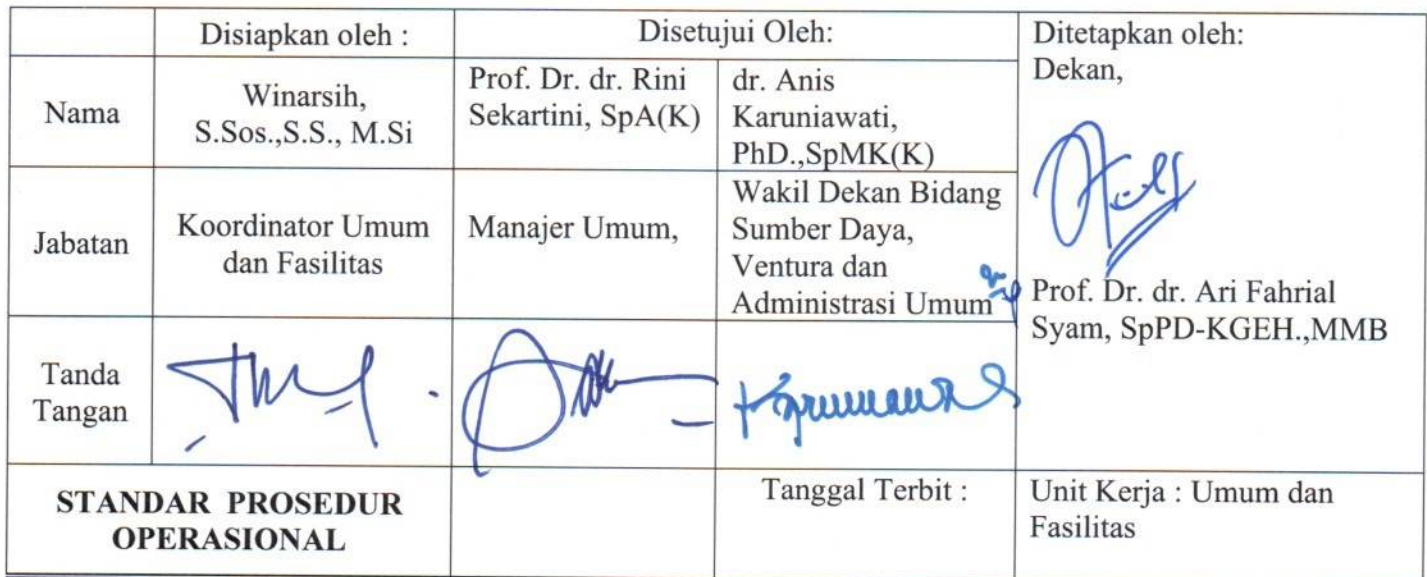 Disiapkan oleh :
Disetujui Oleh:
Ditetapkan oleh:
Dekan,
Nama
Winarsih,
S.Sos.,S.S., M.Si
Prof. Dr. dr. Rini
Sekartini, SpA(K)
dr. Anis
Karuniawati,
PhD.,SpMK(K)
Jabatan
Koordinator Umum
dan Fasilitas
Manajer Umum,
Wakil Dekan Bidang
Sumber Daya,
Ventura dan
Administrasi Umum
Prof. Dr. dr. Ari Fahrial
Syam, SpPD-KGEH.,MMB
Tanda
Tangan
STANDAR PROSEDUR
OPERASIONAL
Tanggal Terbit :
Unit Kerja : Umum dan
Fasilitas